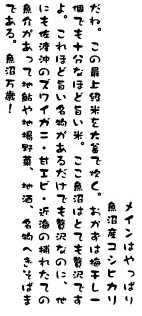 メインはやっぱり
魚沼産コシヒカリ
だわ。この最上級米を大釜で炊く。おかずは梅干し一
個でも十分なほど旨い米。ここ魚沼はとても贅沢です
よ。これほど旨い名物があるだけでも贅沢なのに、他
にも佐渡沖のズワイガニ・甘エビ・近海の捕れたての
魚介があって地鮎や地場野菜、地酒、名物へぎそばま
である。魚沼万歳！